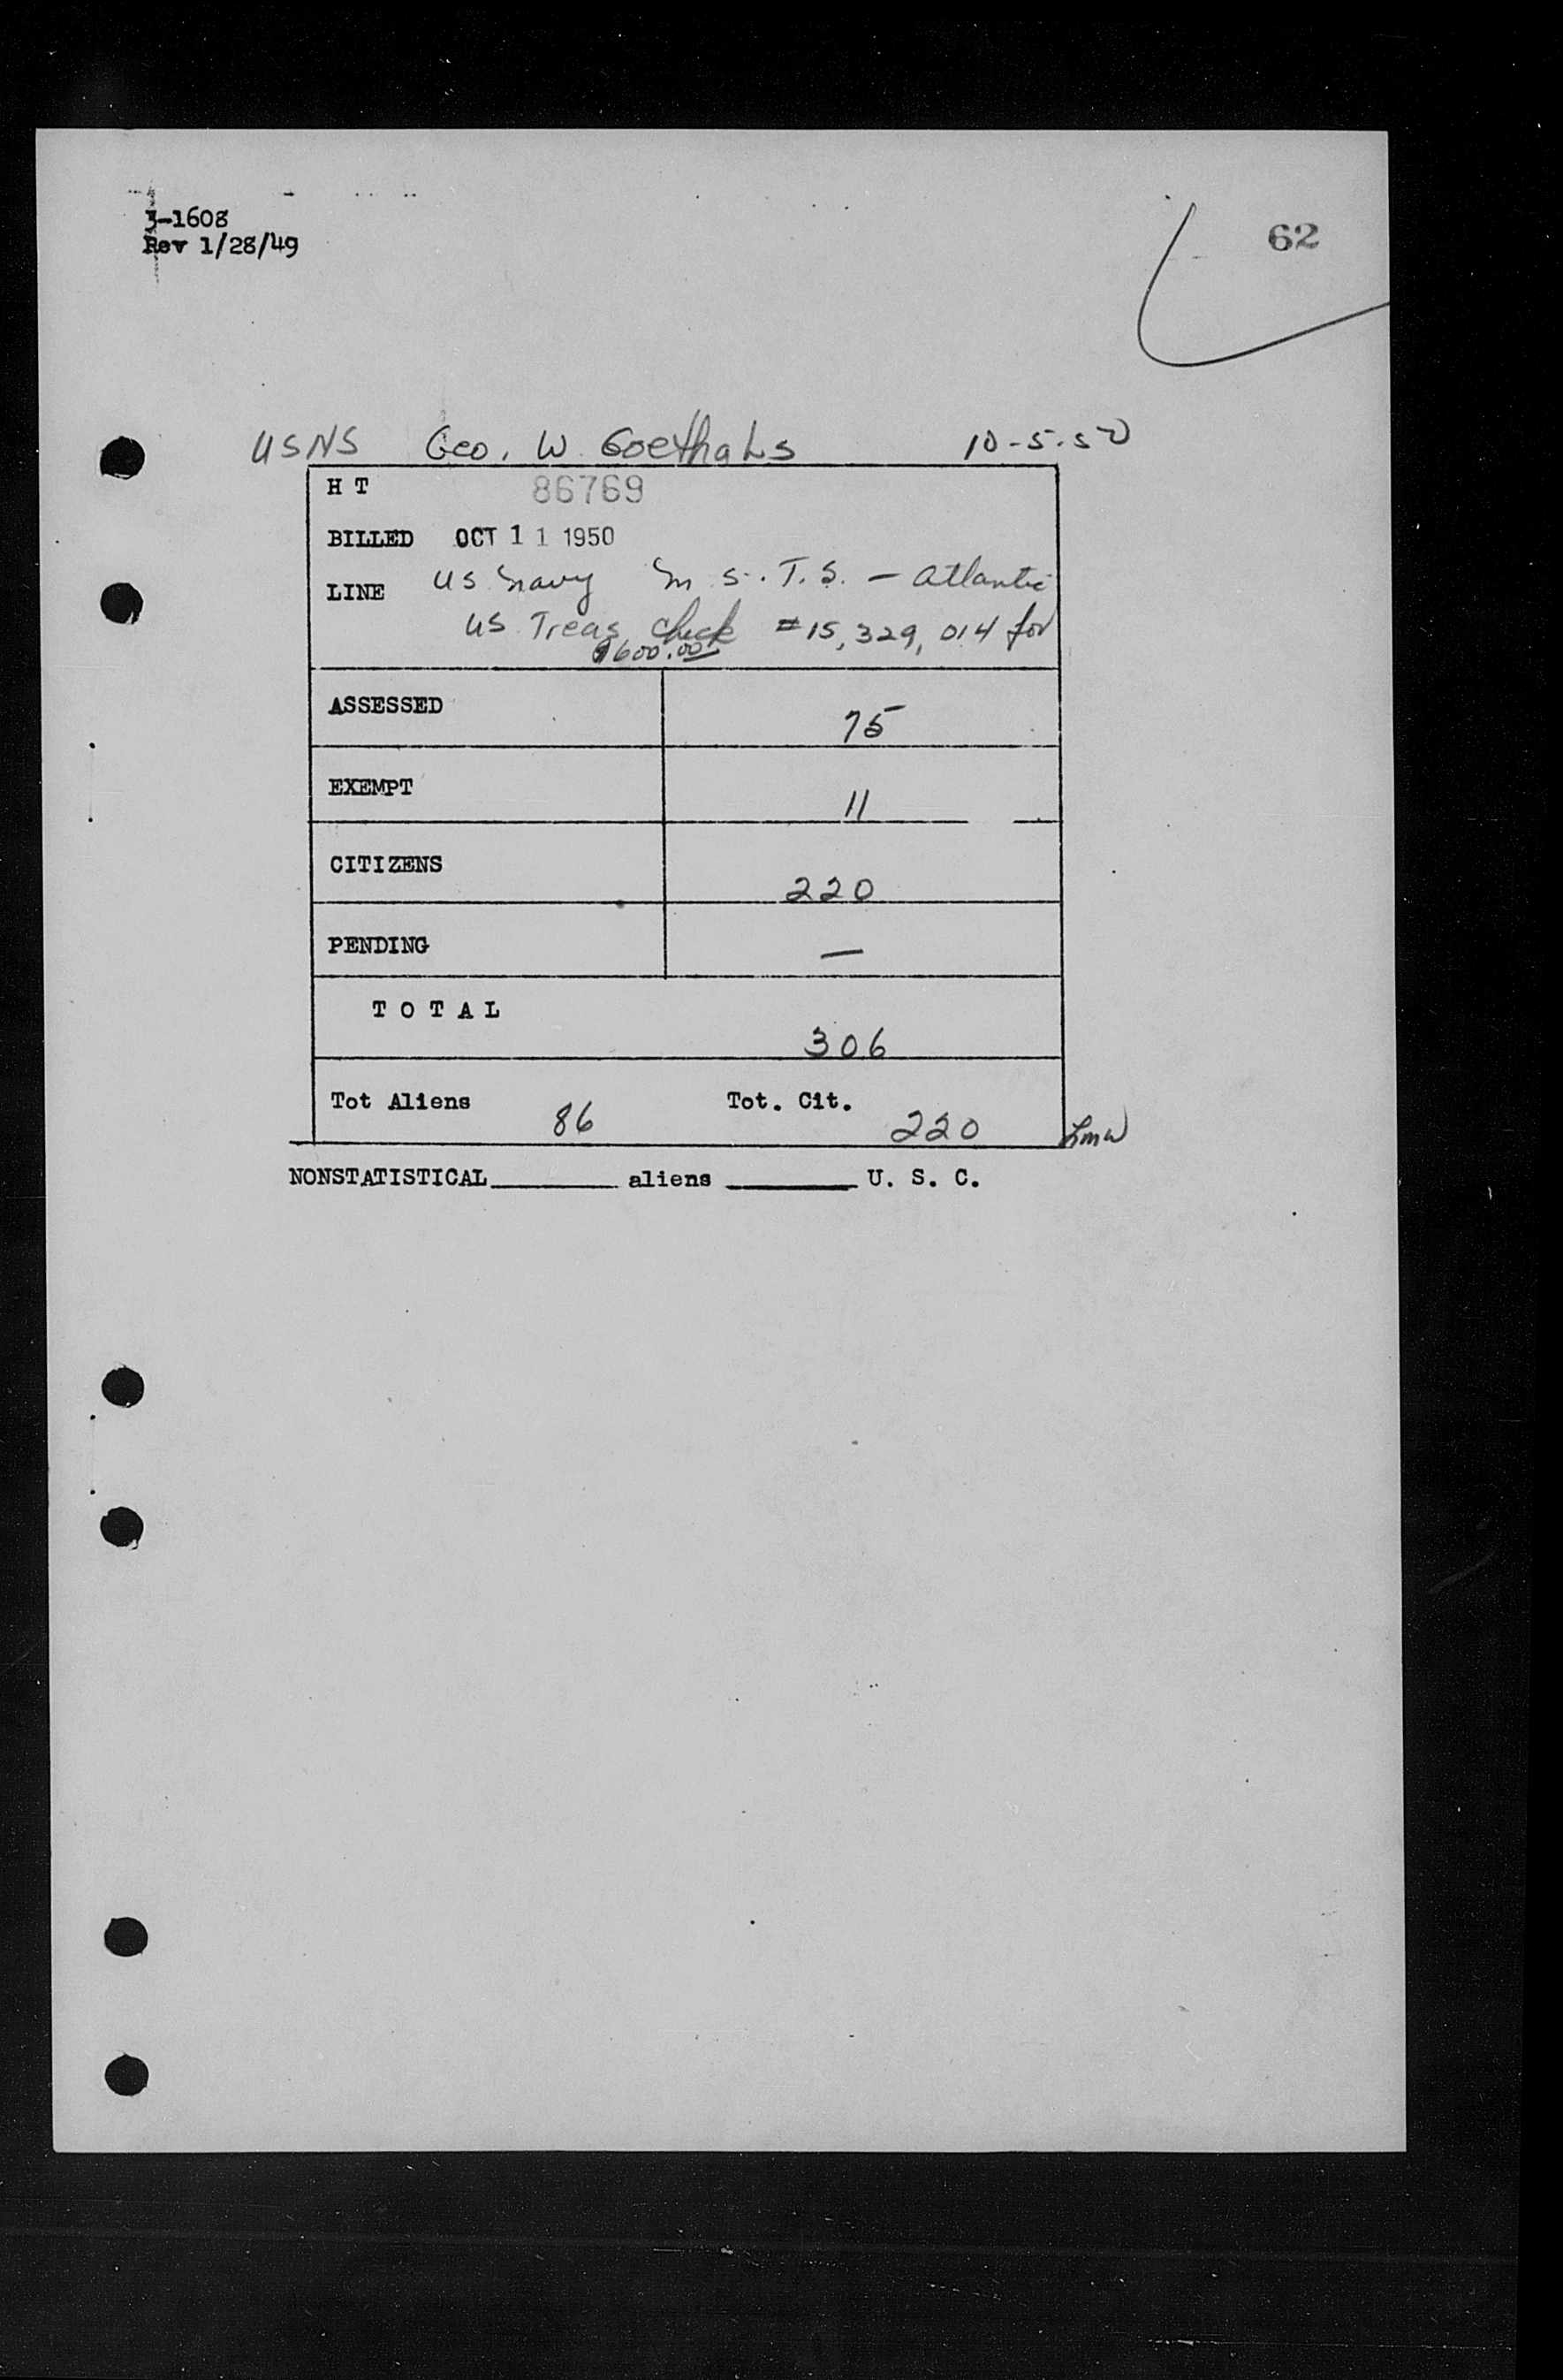 3-1608
Rev 1/28/49
62
USNS Geo. W. Goethals 10-5-50
H T 86769
BILLED OCT 11 1950
LINE US Navy M. S. T. S. - Atlantic
US Treas Check #15,329,014 for
$600.00
ASSESSED 75
EXEMPT 11
CITIZENS 220
PENDING —
T O T A L 306
Tot Aliens 86 Tot. Cit. 220 Lmw
NONSTATISTICAL________ aliens ________ U. S. C.